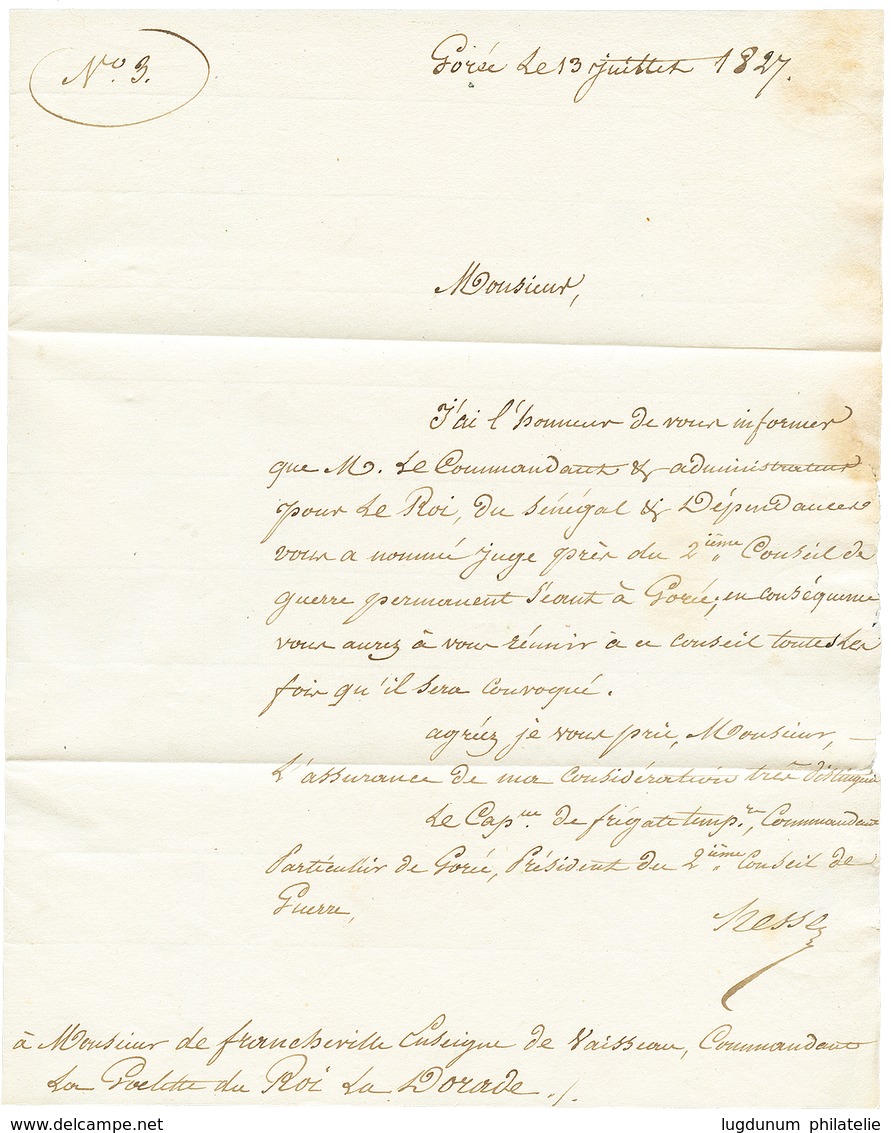 No. 3.
Gorée Le 13 juillet 1827.
Monsieur,
J'ai l'honneur de vous informer
que M. Le Commandant & administrateur
pour Le Roi, du Sénégal & Dépendances
vous a nommé juge près du 2ième Conseil de
guerre permanent Séant à Gorée; en conséquence
vous aurez à vous réunir à ce conseil toutes Les
fois qu'il sera convoqué.
agréez je vous prie, Monsieur, —
L'assurance de ma considération très distinguée
Le Capne. de frégate temp.re, Commandant
Particulier de Gorée, Président du 2ième Conseil de
Guerre,
à Monsieur de francheville Enseigne de Vaisseau, Commandant
La Goelette du Roi La Dorade ./.
www.delcampe.net
lugdunum philatelie